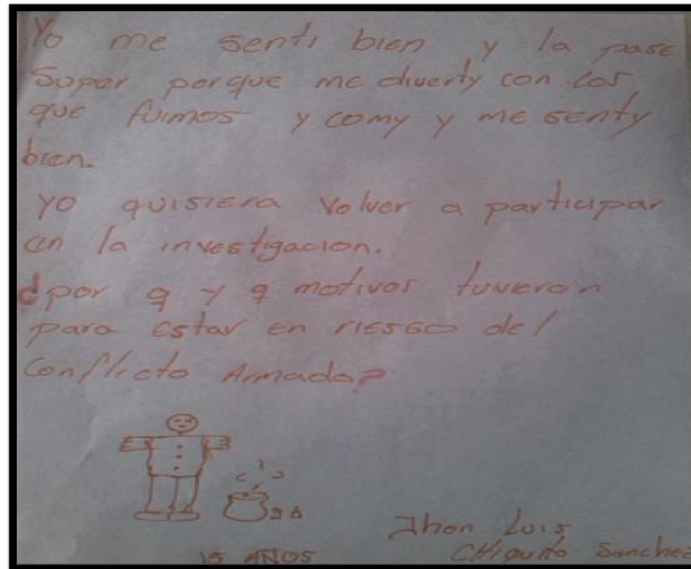 Yo me senti bien y la pase
Super porque me diverty con los
que fuimos y comy y me senty
bien.
yo quisiera volver a participar
en la investigacion.
¿por q y q motivos tuvieron
para estar en riesgo del
Conflicto Armado?
15 AÑOS
Jhon Luis
CHiquito Sanchez